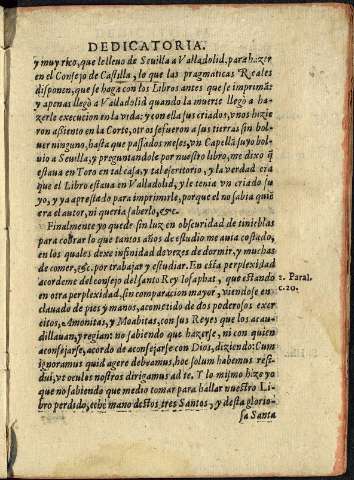 DEDICATORIA.
y muy rico, que le lleuo de Seuilla a Valladolid, para hazer
en el Consejo de Castilla, lo que las pragmaticas Reales
disponen, que se haga con los Libros antes que se impriman:
y apenas llegò a Valladolid quando la muerte llegò a ha-
zerle execucion en la vida: y con ella sus criados, vnos hizie
ron assiento en la Corte, otros se fueron a sus tierras sin bol-
uer ninguno, hasta que passados meses, vn Capellã suyo bol-
uio a Seuilla, y preguntandole por nuestro libro, me dixo q̃
estaua en Toro en tal casa, y tal escritorio, y la verdad era
que el Libro estaua en Valladolid, y le tenia vn criado su
yo, y ya aprestado para imprimirle, porque el no sabia quiẽ
era el autor, ni queria saberlo, &c.
Finalmente yo quede sin luz en obscuridad de tinieblas
para cobrar lo que tantos años de estudio me auia costado,
en los quales dexe infinidad de vezes de dormir, y muchas
de comer, &c. por trabajar y estudiar. En esta perplexidad
acordeme del consejo del santo Rey Iosaphat, que estando
en otra perplexidad sin comparacion mayor, viendose en
clauado de pies y manos, acometido de dos poderosos exer
citos, Admonitas, y Moabitas, con sus Reyes que los acau-
dillauan, y regian: no sabiendo que hazerse, ni con quien
aconsejarse, acordo de aconsejarse con Dios, diziendo: Cum
ignoramus quid agere debeamus, hoc solum habemus resi-
dui, vt oculos nostros dirigamus ad te. Y lo mismo hize yo
que no sabiendo que medio tomar para hallar nuestro Li-
bro perdido, eché mano destos tres Santos, y desta glorio-
sa Santa
2. Paral.
c. 20.